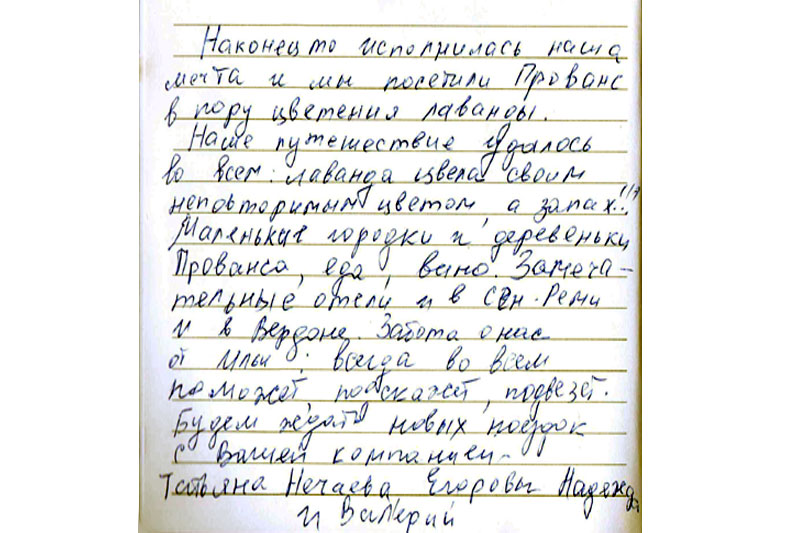 Наконецто исполнилась наша
мечта и мы посетили Прованс
в пору цветения лаванды.
Наше путешествие удалось
во всем: лаванда цвела своим
неповторимым цветом, а запах!!!
Маленькие городки и деревеньки
Прованса, еда, вино. Замеча-
тельные отели и в Сен-Реми
и в Вердоне. Забота о нас
от Ильи: всегда во всем
поможет, подскажет, подвезет.
Будем ждать новых поездок
с Вашей компанией-
Татьяна Нечаева Егоровы Надежда
и Валерий